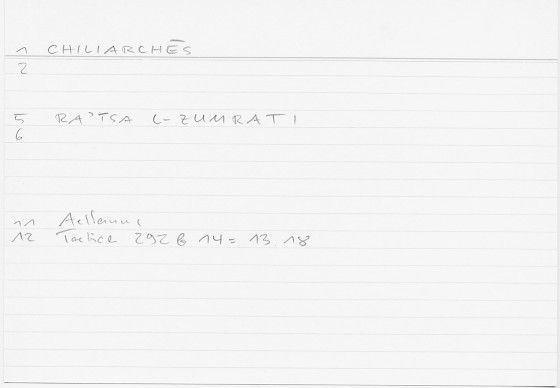 1 CHILIARCHĒS
2
5 RA'ĪSA L-ZUMRATI
6
11 Aelianus
12 Tactica 292 B 14 = 13 18